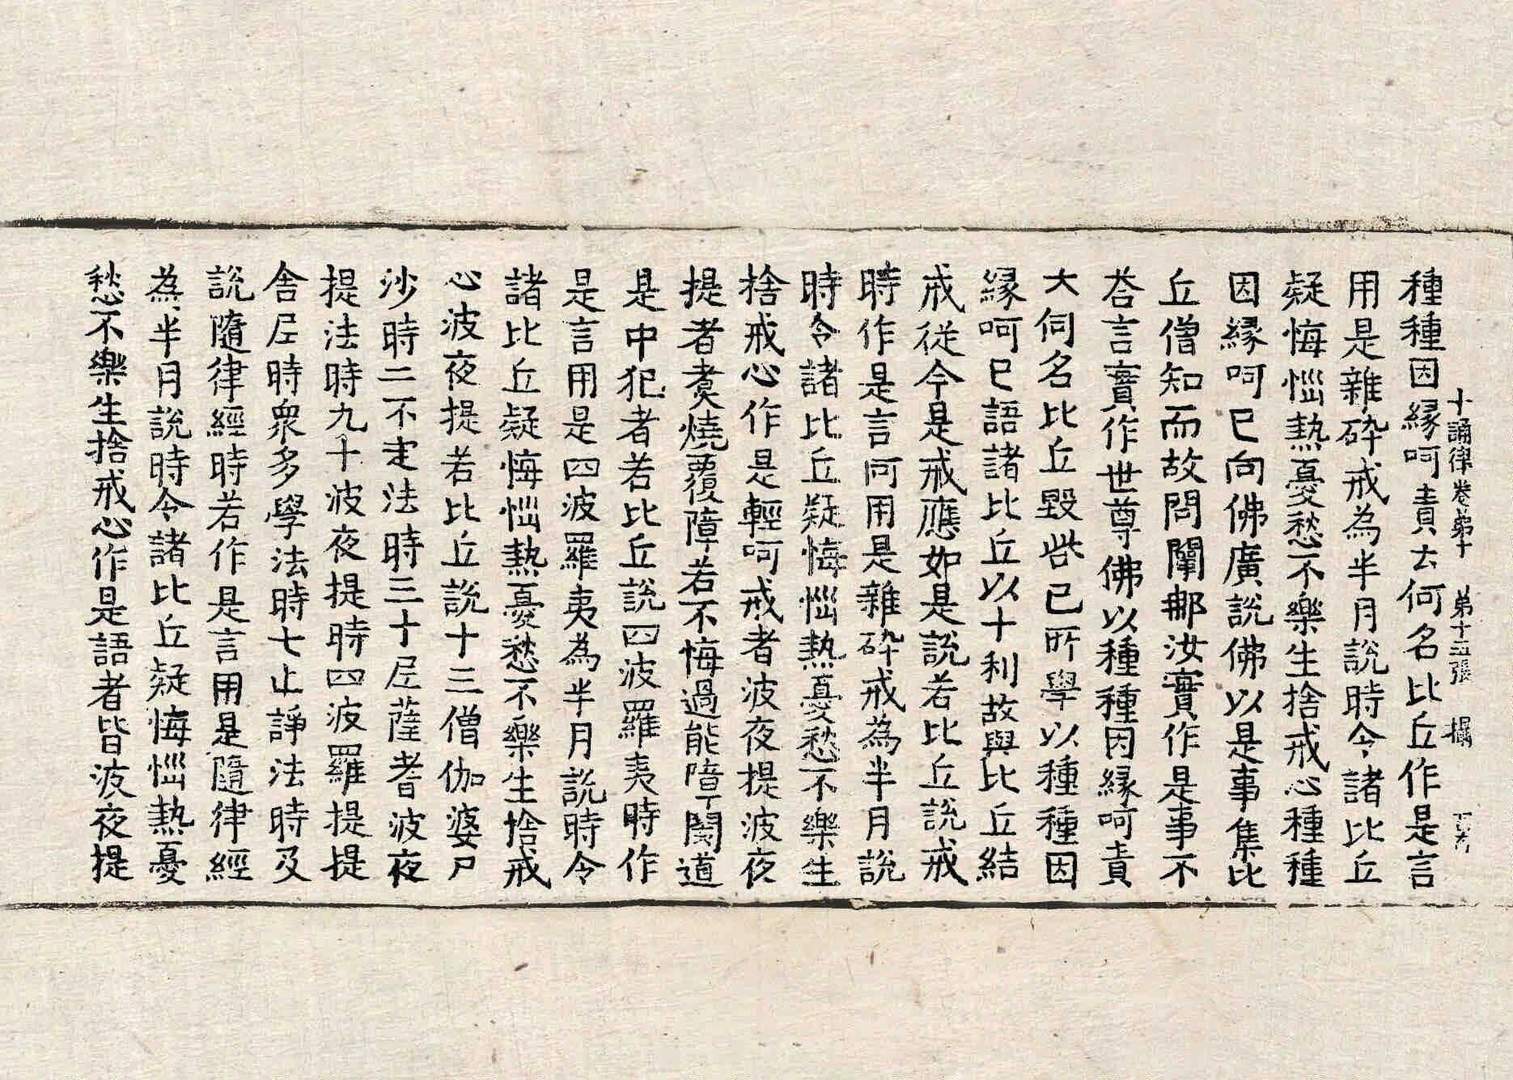 種種因緣呵責云何名比丘作是言
十誦律卷第十 第十三張 攝
用是雜碎戒為半月說時令諸比丘
疑悔惱熱憂愁不樂生捨戒心種種
因緣呵已向佛廣說佛以是事集比
丘僧知而故問闡那汝實作是事不
荅言實作世尊佛以種種因緣呵責
大何名比丘毀呰已所學以種種因
緣呵已語諸比丘以十利故與比丘結
戒從今是戒應如是說若比丘說戒
時作是言何用是雜碎戒為半月說
時令諸比丘疑悔惱熱憂愁不樂生
捨戒心作是輕呵戒者波夜提波夜
提者煑燒覆障若不悔過能障閡道
是中犯者若比丘說四波羅夷時作
是言用是四波羅夷為半月說時令
諸比丘疑悔惱熱憂愁不樂生捨戒
心波夜提若比丘說十三僧伽婆尸
沙時二不定法時三十尼薩耆波夜
提法時九十波夜提時四波羅提提
舍尼時衆多學法時七止諍法時及
說隨律經時若作是言用是隨律經
為半月說時令諸比丘疑悔惱熱憂
愁不樂生捨戒心作是語者皆波夜提